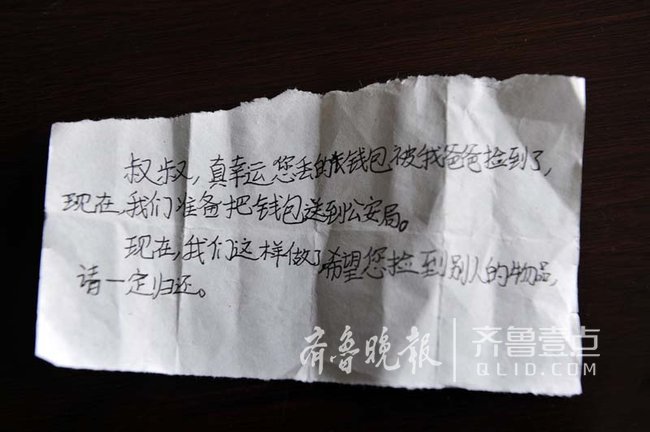 叔叔，真幸运您丢的钱包被我爸爸捡到了，
现在，我们准备把钱包送到公安局。
现在，我们这样做了，希望您捡到别人的物品，
请一定归还。
齐鲁晚报 齐鲁壹点
QLID.COM